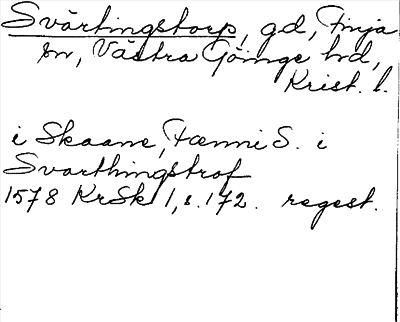 Svärtingstorp, gd, Finja
sn, Västra Göinge hd,
Krist. l.
i Skaane, Fænni S. i
Svarthingstrof
1578 KrSk 1, s. 172. regest.